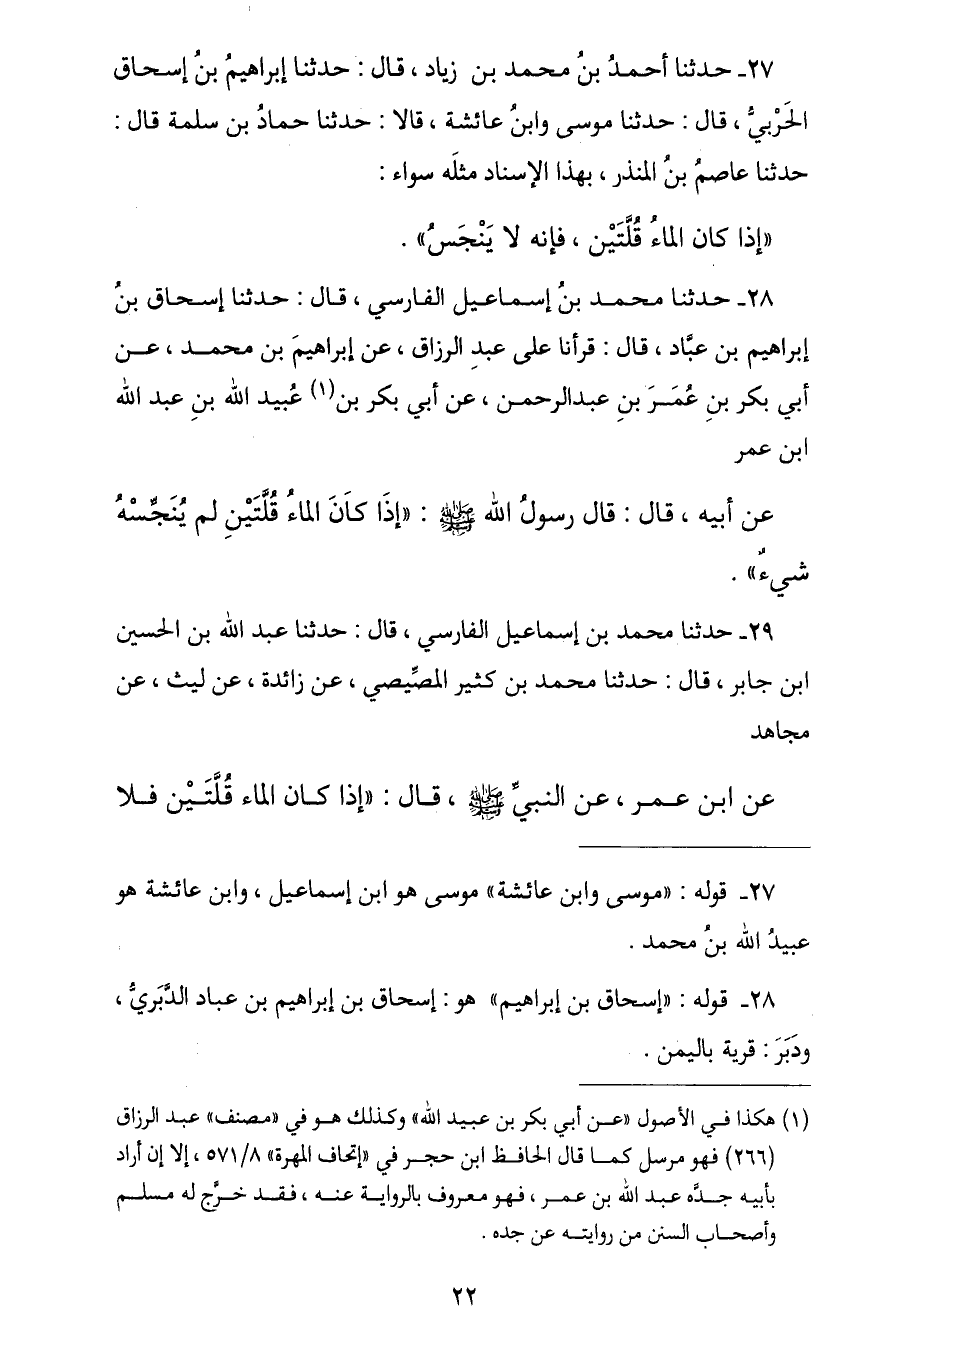 ٢٧ـ حدثنا أحمدُ بنُ محمد بن زياد ، قال : حدثنا إبراهيمُ بنُ إسحاق
الحَرْبيُّ ، قال : حدثنا موسى وابنُ عائشة ، قالا : حدثنا حمادُ بن سلمة قال :
حدثنا عاصمُ بنُ المنذر ، بهذا الإسناد مثلَه سواء :
«إذا كان الماءُ قُلَّتَيْن ، فإنه لا يَنْجَسُ» .
٢٨ـ حدثنا محمد بنُ إسماعيل الفارسي ، قال : حدثنا إسحاق بنُ
إبراهيم بن عبَّاد ، قال : قرأنا على عبدِ الرزاق ، عن إبراهيمَ بن محمد ، عن
أبي بكر بنِ عُمَرَ بنِ عبدالرحمن ، عن أبي بكر بن(١) عُبيد الله بنِ عبد الله
ابن عمر
عن أبيه ، قال : قال رسولُ الله ﷺ : «إذَا كَانَ الماءُ قُلَّتَيْنِ لم يُنَجِّسْهُ
شيءٌ» .
٢٩ـ حدثنا محمد بن إسماعيل الفارسي ، قال : حدثنا عبد الله بن الحسين
ابن جابر ، قال : حدثنا محمد بن كثير المصِّيصي ، عن زائدة ، عن ليث ، عن
مجاهد
عن ابن عمر ، عن النبيِّ ﷺ ، قال : «إذا كان الماء قُلَّتَيْن فلا
٢٧ـ قوله : «موسى وابن عائشة» موسى هو ابن إسماعيل ، وابن عائشة هو
عبيدُ الله بنُ محمد .
٢٨ـ قوله : «إسحاق بن إبراهيم» هو : إسحاق بن إبراهيم بن عباد الدَّبَريُّ ،
ودَبَرَ : قرية باليمن .
(١) هكذا في الأصول «عن أبي بكر بن عبيد الله» وكذلك هو في «مصنف» عبد الرزاق
(٢٦٦) فهو مرسل كما قال الحافظ ابن حجر في «إتحاف المهرة» ٥٧١/٨ ، إلا إن أراد
بأبيه جدَّه عبد الله بن عمر ، فهو معروف بالرواية عنه ، فقد خرَّج له مسلم
وأصحاب السنن من روايته عن جده .
٢٢